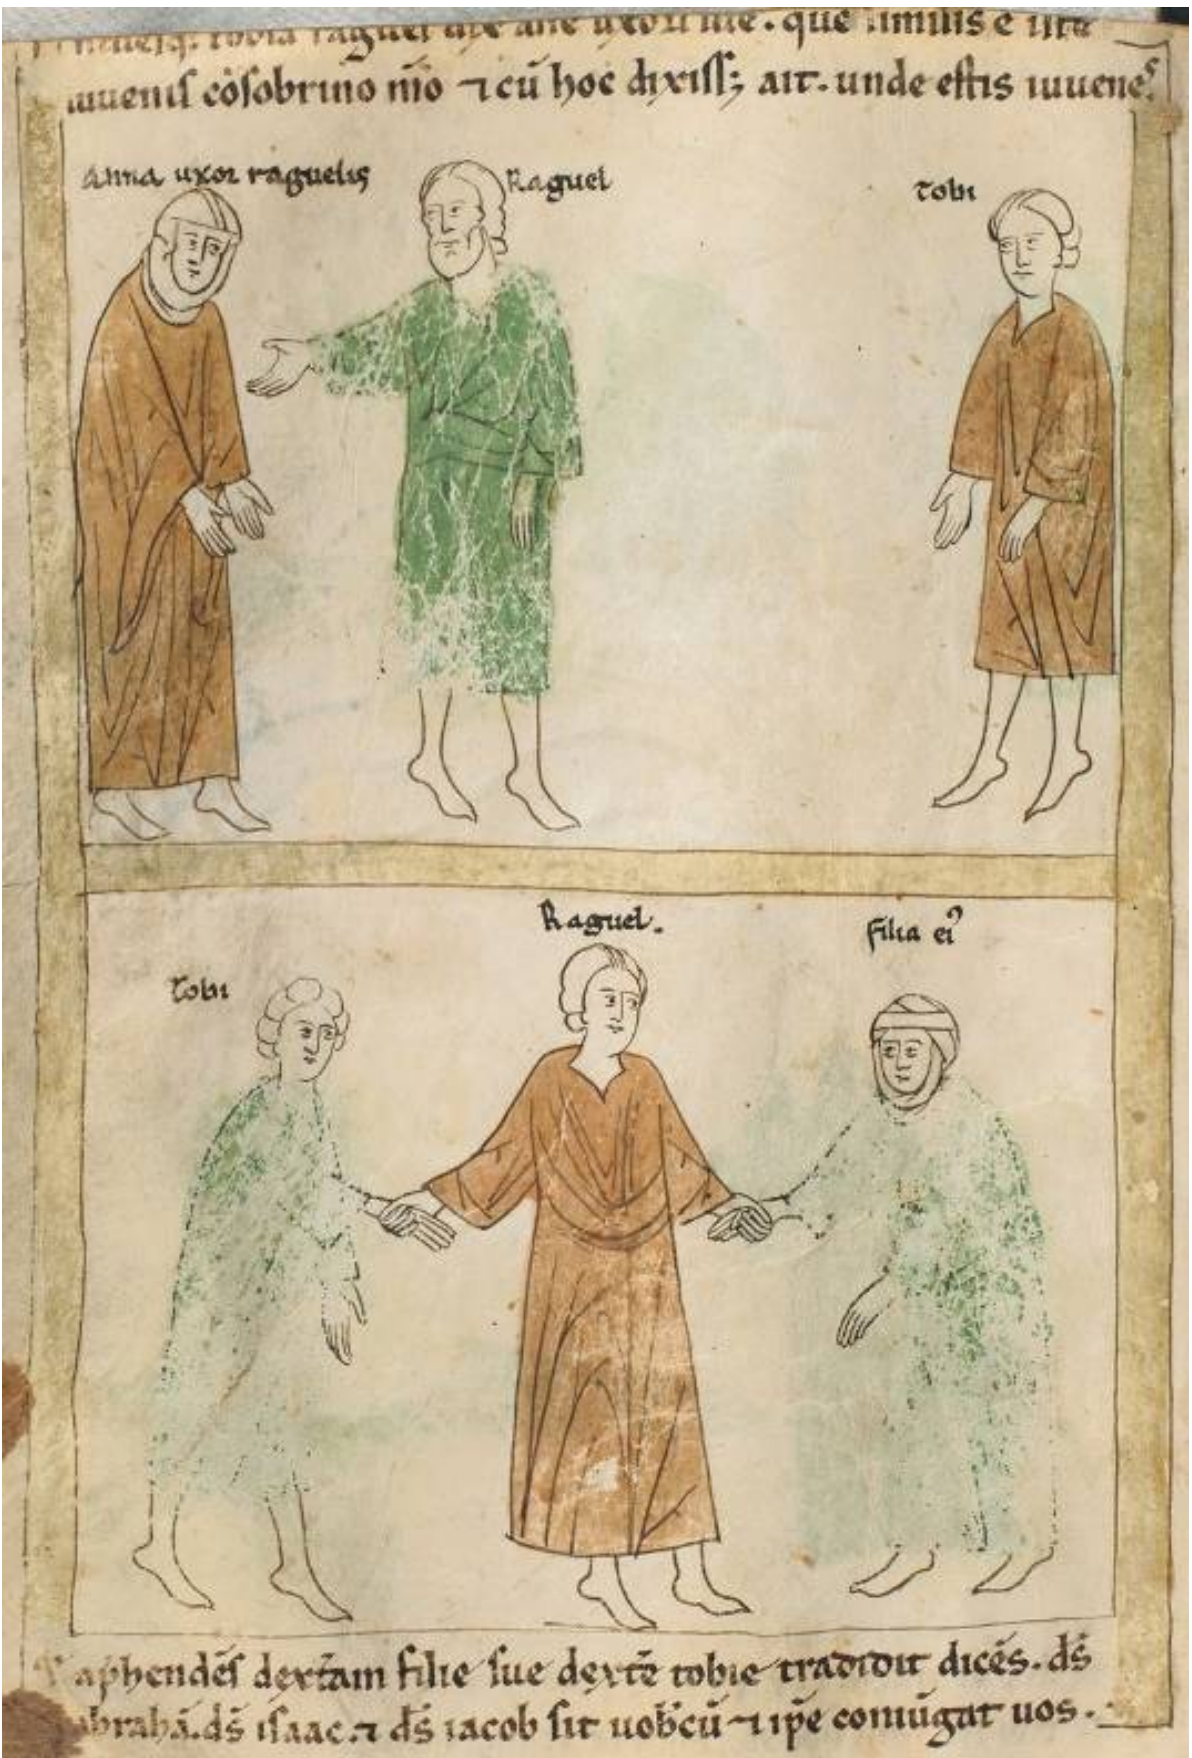 tobia raguel uxori sue. que similis e iste
iuuenis cósobrino mō ⁊ cū hoc dixiss; ait. unde estis iuuenes
anna uxor raguelis
Raguel
tobi
Raguel.
filia eiꝰ
tobi
aphendēs dext̄am filie sue dext̄e tobie tradidit dicēs. ds̄
abrahā. ds̄ isaac. ⁊ ds̄ iacob sit uob̄cū ⁊ ip̄e coniūgat uos.